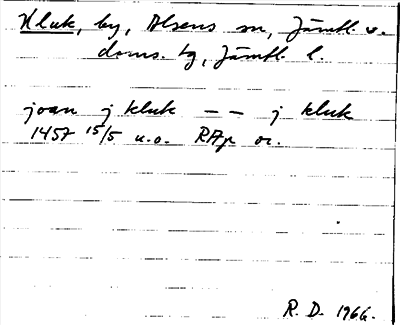 Kluk, by, Alsens sn, Jämtl. v.
doms. tg, Jämtl. l.
joan j kluk — — j kluk
1457 15/5 u.o. RAp or.
R. D. 1966.